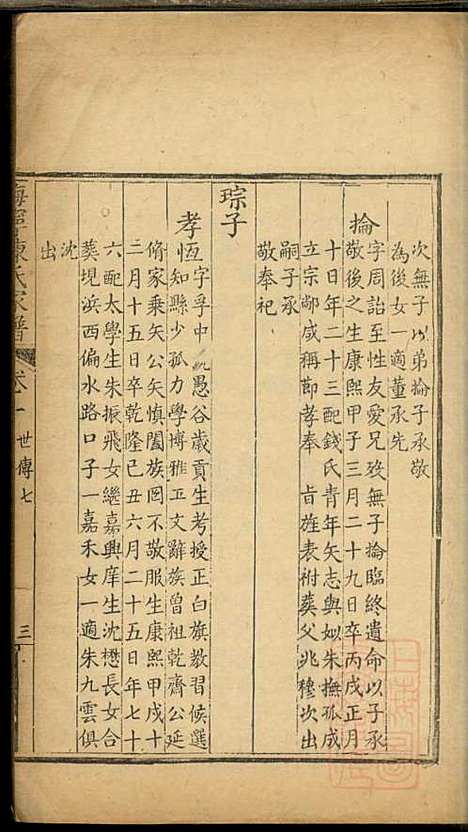 次無子以弟掄子承敬
為後女一適董承先
掄
字周詒至性友愛兄歿無子掄臨終遺命以子承
敬後之生康熙甲子三月二十九日卒丙戌正月
十日年二十三配錢氏青年矢志與姒朱撫孤成
立宗鄰咸稱節孝奉 旨旌表祔葬父兆穆次出
嗣子承
敬奉祀
琮子
孝恆
字孚中 號愚谷歲貢生考授正白旗教習候選
知縣少孤力學博雅工文辭族曾祖乾齋公延
脩家乘矢公矢慎闔族罔不敬服生康熙甲戌十
二月十五日卒乾隆己丑六月二十五日年七十
六配太學生朱振飛女繼嘉興庠生沈懋長女合
葬現浜西偏水路口子一嘉禾女一適朱九雲俱
沈
出
海寧陳氏家譜
卷十一 世傳七
三